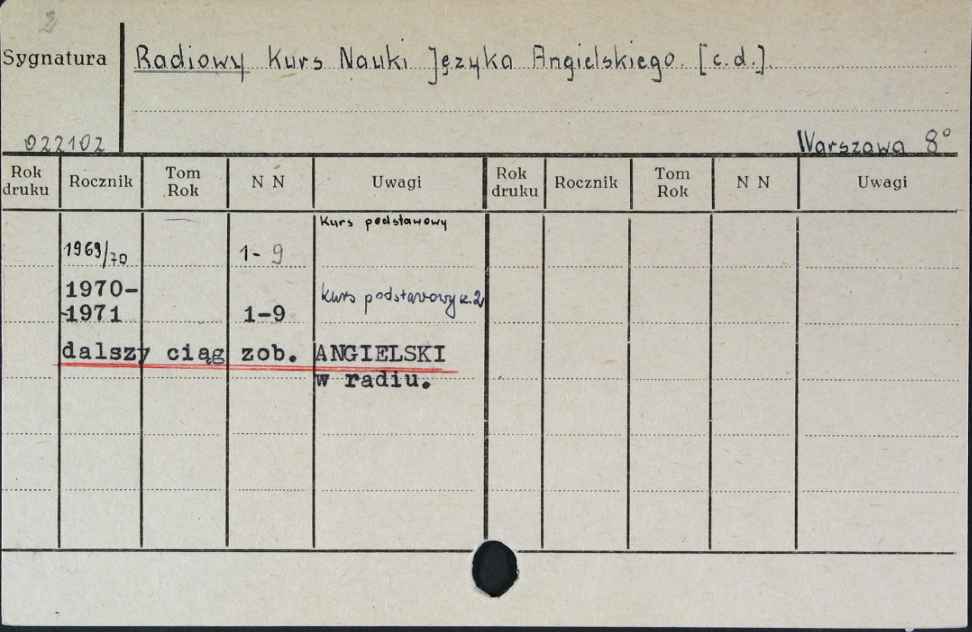 3
Sygnatura
Radiowy Kurs Nauki Języka Angielskiego. [c.d.].
022102
Warszawa 8°
Rok druku Rocznik Tom Rok N N Uwagi Rok druku Rocznik Tom Rok N N Uwagi
Kurs podstawowy
1969/70 1-9
1970-
1971 1-9 kurs podstawowy cz.2
dalszy ciąg zob. ANGIELSKI
w radiu.